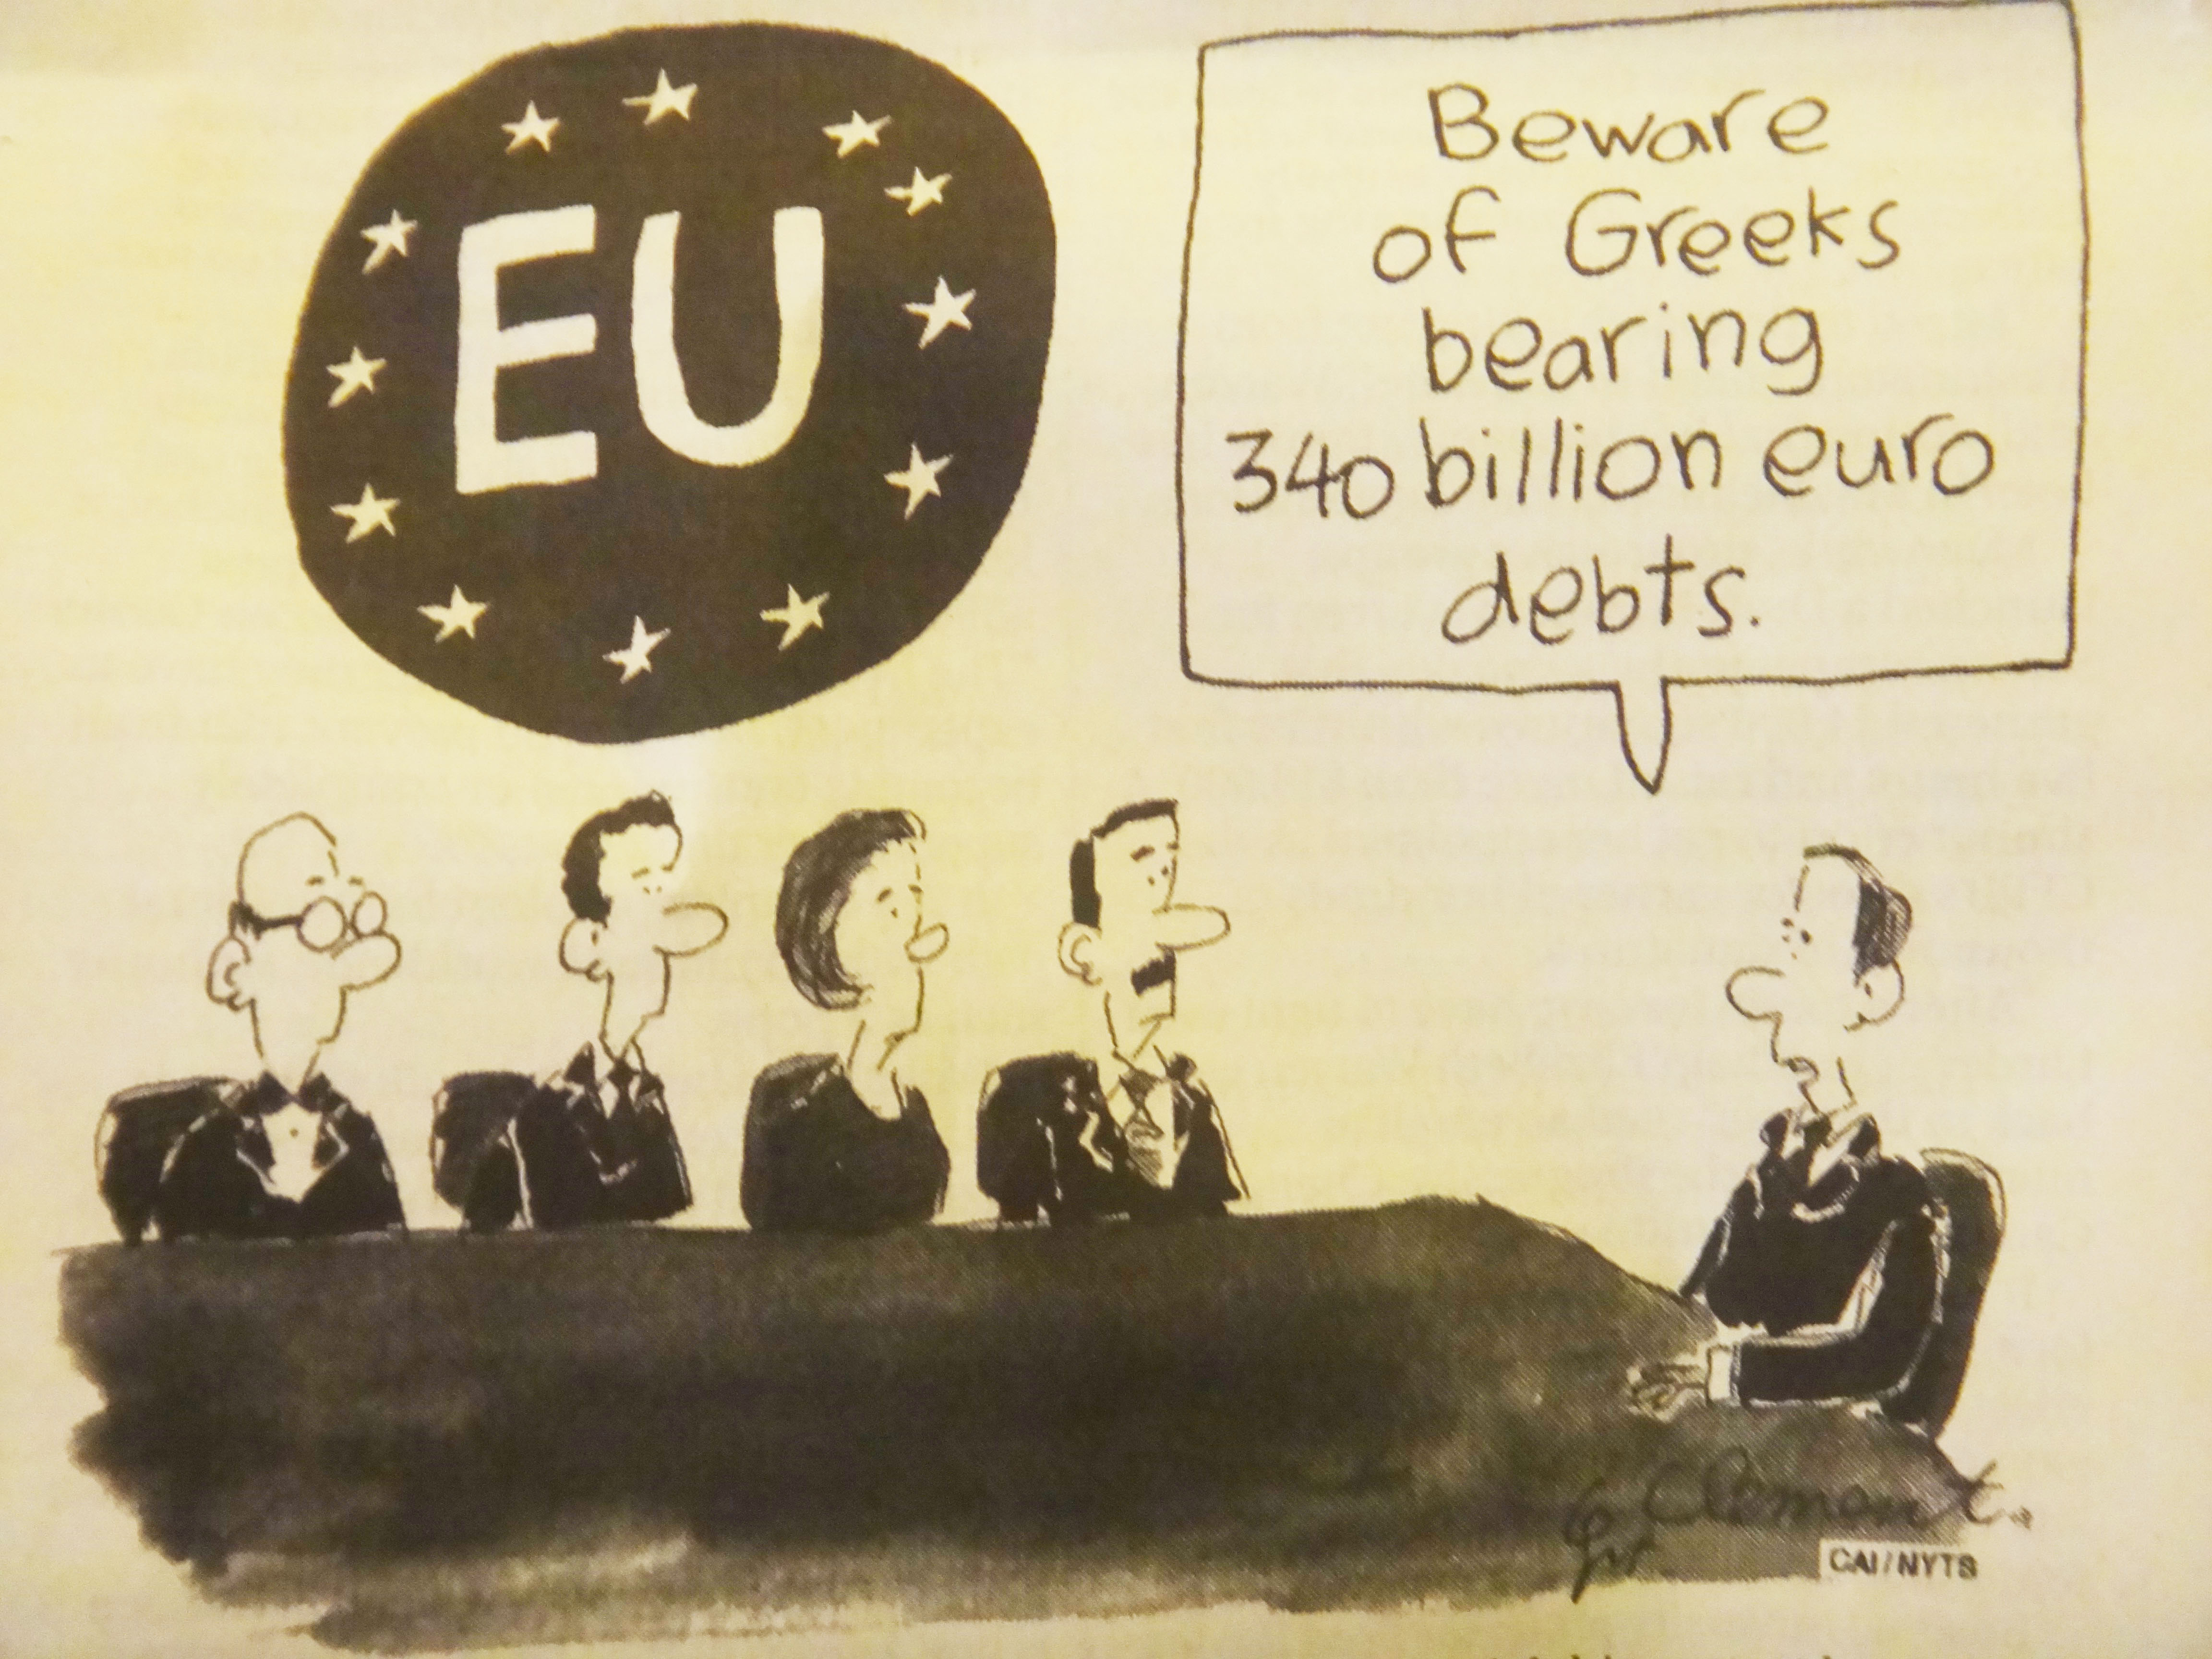 EU
Beware
of Greeks
bearing
340 billion euro
debts.
Clement.
CAI/NYTS